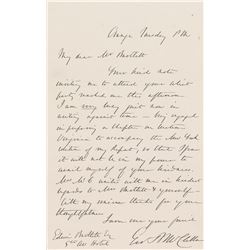 Orange Tuesday P.M.
My dear Mr Bartlett
Your kind note
inviting me to attend your whist
party reached me this afternoon.
I am very busy just now in
writing against time - being engaged
in preparing a chapter on Western
Virginia to accompany the New York
of my Report, so that I fear
it will not be in my power to
avail myself of your kindness.
Mrs McC unites with me in kindest
regards to Mrs Bartlett & yourself -
With my sincere thanks for your
thoughtfulness
I am ever your friend
Geo. B. McClellan
Edwin Bartlett Esq
5th Ave Hotel